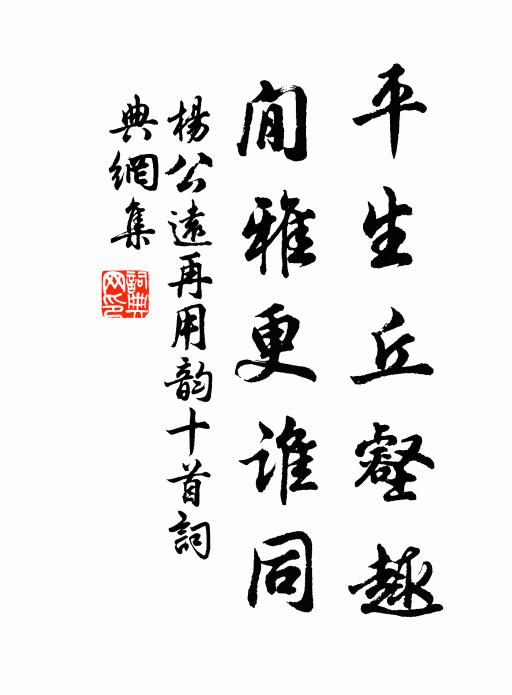 平生丘壑趣
閒雅更誰同
楊公遠再用韵十首詞
典網集
詞典网印